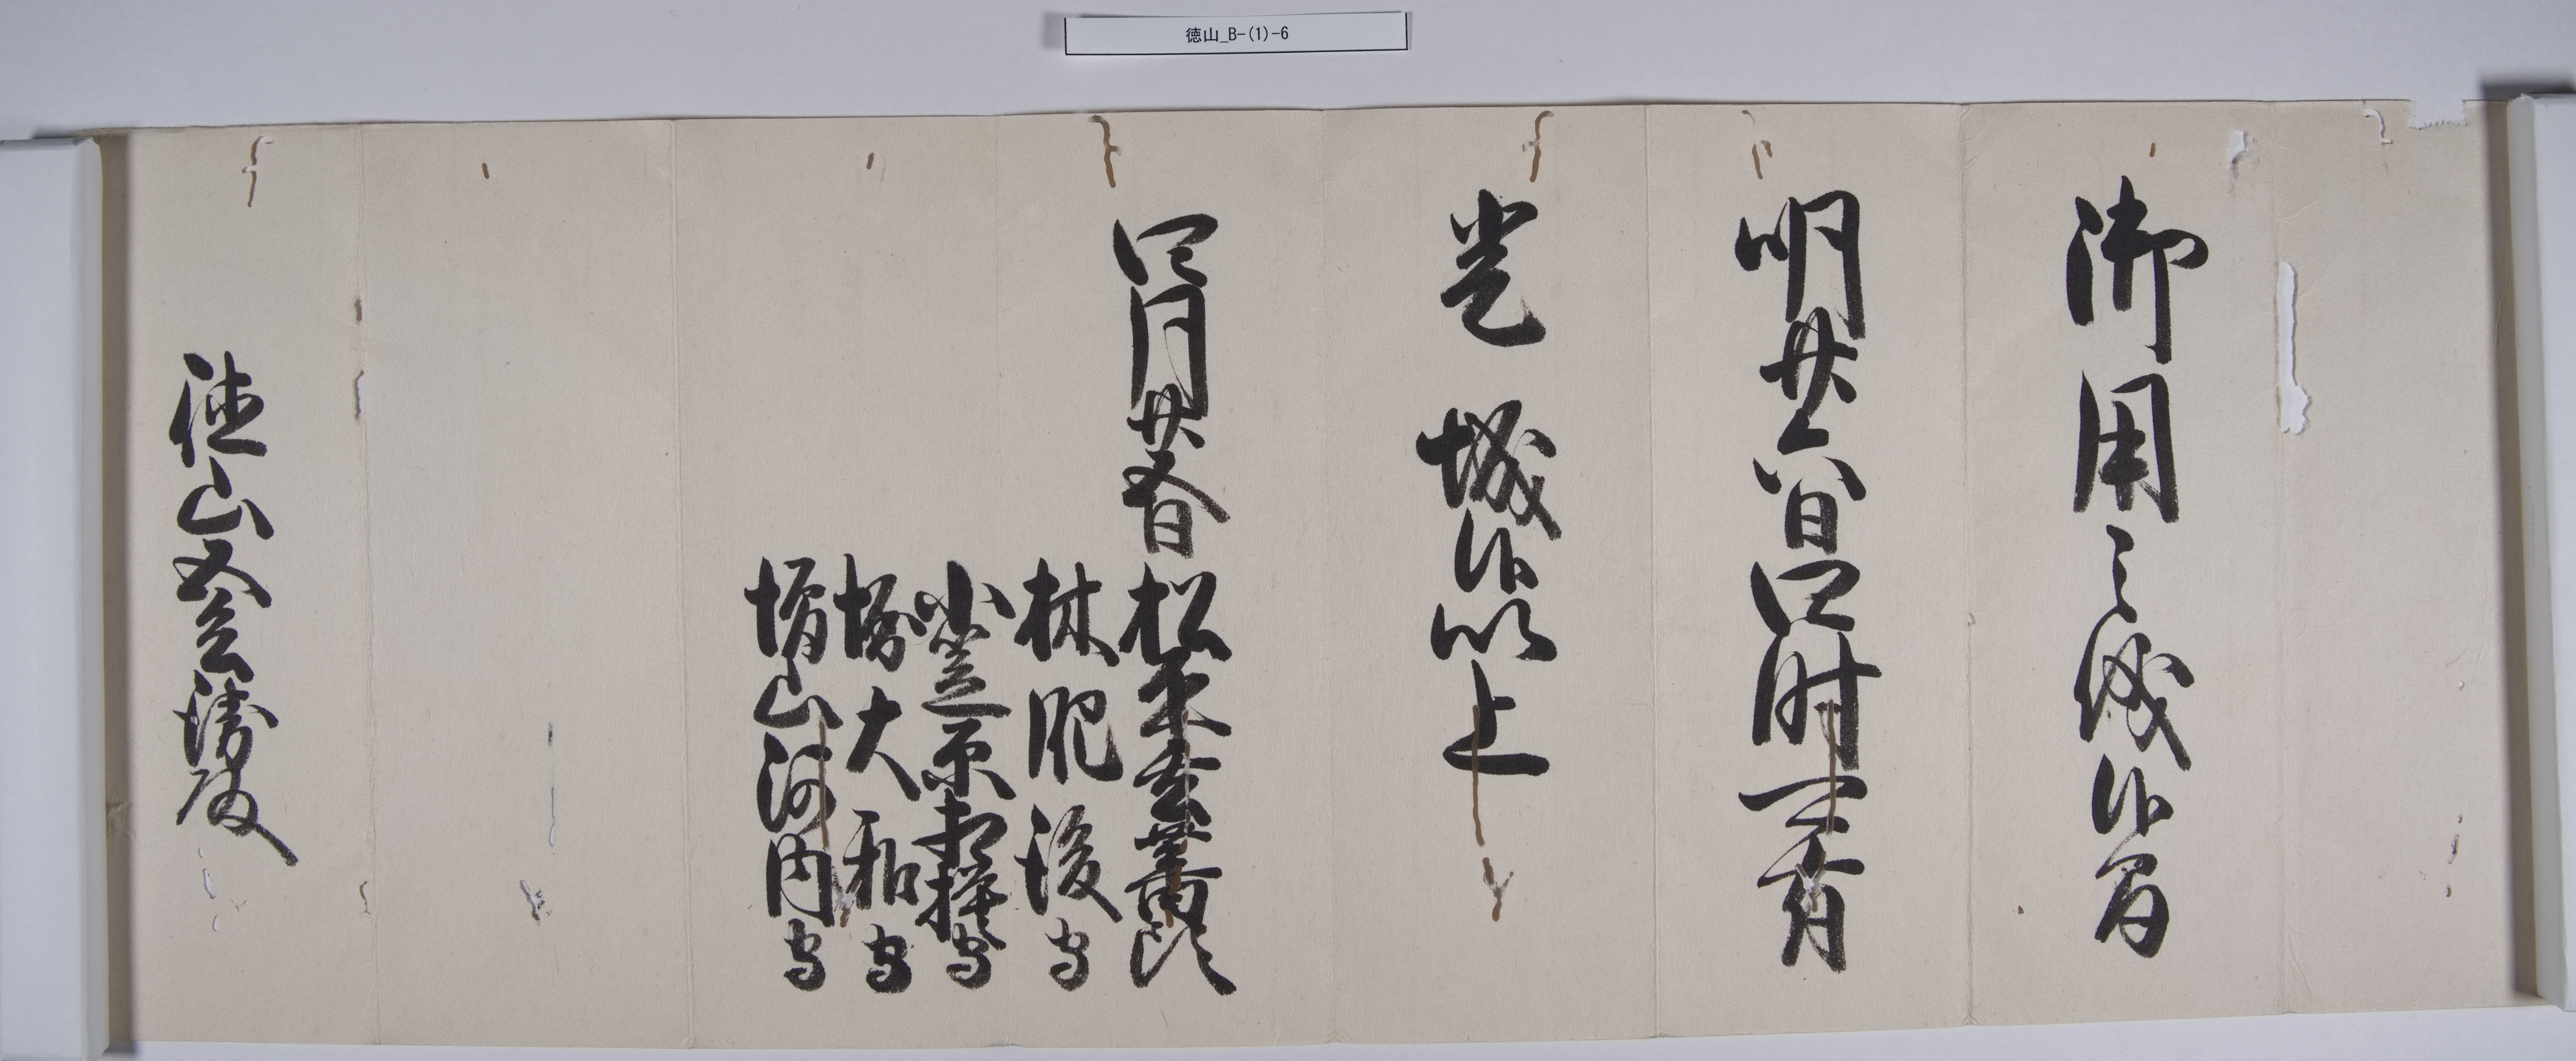 徳山_B-(1)-6
御用之儀候間
明廿六日四時可有
登 城候以上
四月廿五日 松平玄蕃頭
林肥後守
小笠原相模守
堀大和守
増山河内守
徳山五兵衛殿